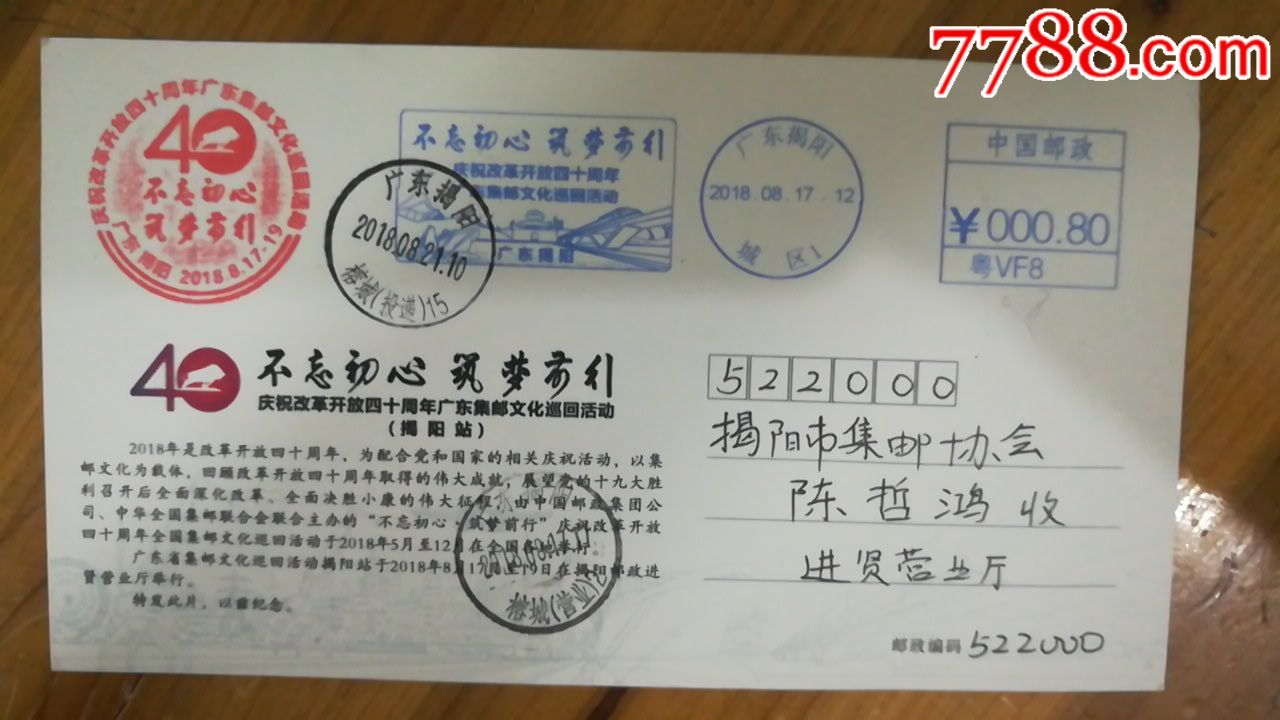 7788.com
庆祝改革开放四十周年广东集邮文化巡回活动
40
不忘初心
筑梦前行
广东 揭阳 2018 8.17-19
不忘初心 筑梦前行
庆祝改革开放四十周年
广东集邮文化巡回活动
广东揭阳
广东揭阳
2018.08.21.10
榕城(投递)15
广东揭阳
2018.08.17.12
城区1
中国邮政
¥000.80
粤VF8
40
不忘初心 筑梦前行
庆祝改革开放四十周年广东集邮文化巡回活动
(揭阳站)
2018年是改革开放四十周年,为配合党和国家的相关庆祝活动,以集
邮文化为载体,回顾改革开放四十周年取得的伟大成就,展望党的十九大胜
利召开后全面深化改革、全面决胜小康的伟大征程,由中国邮政集团公
司、中华全国集邮联合会联合主办的“不忘初心·筑梦前行”庆祝改革开放
四十周年全国集邮文化巡回活动于2018年5月至12月在全国各地举行。
广东省集邮文化巡回活动揭阳站于2018年8月17日至19日在揭阳邮政进
贤营业厅举行。
特发此片,以兹纪念。
榕城(营业)
522000
揭阳市集邮协会
陈哲鸿 收
进贤营业厅
邮政编码 522000